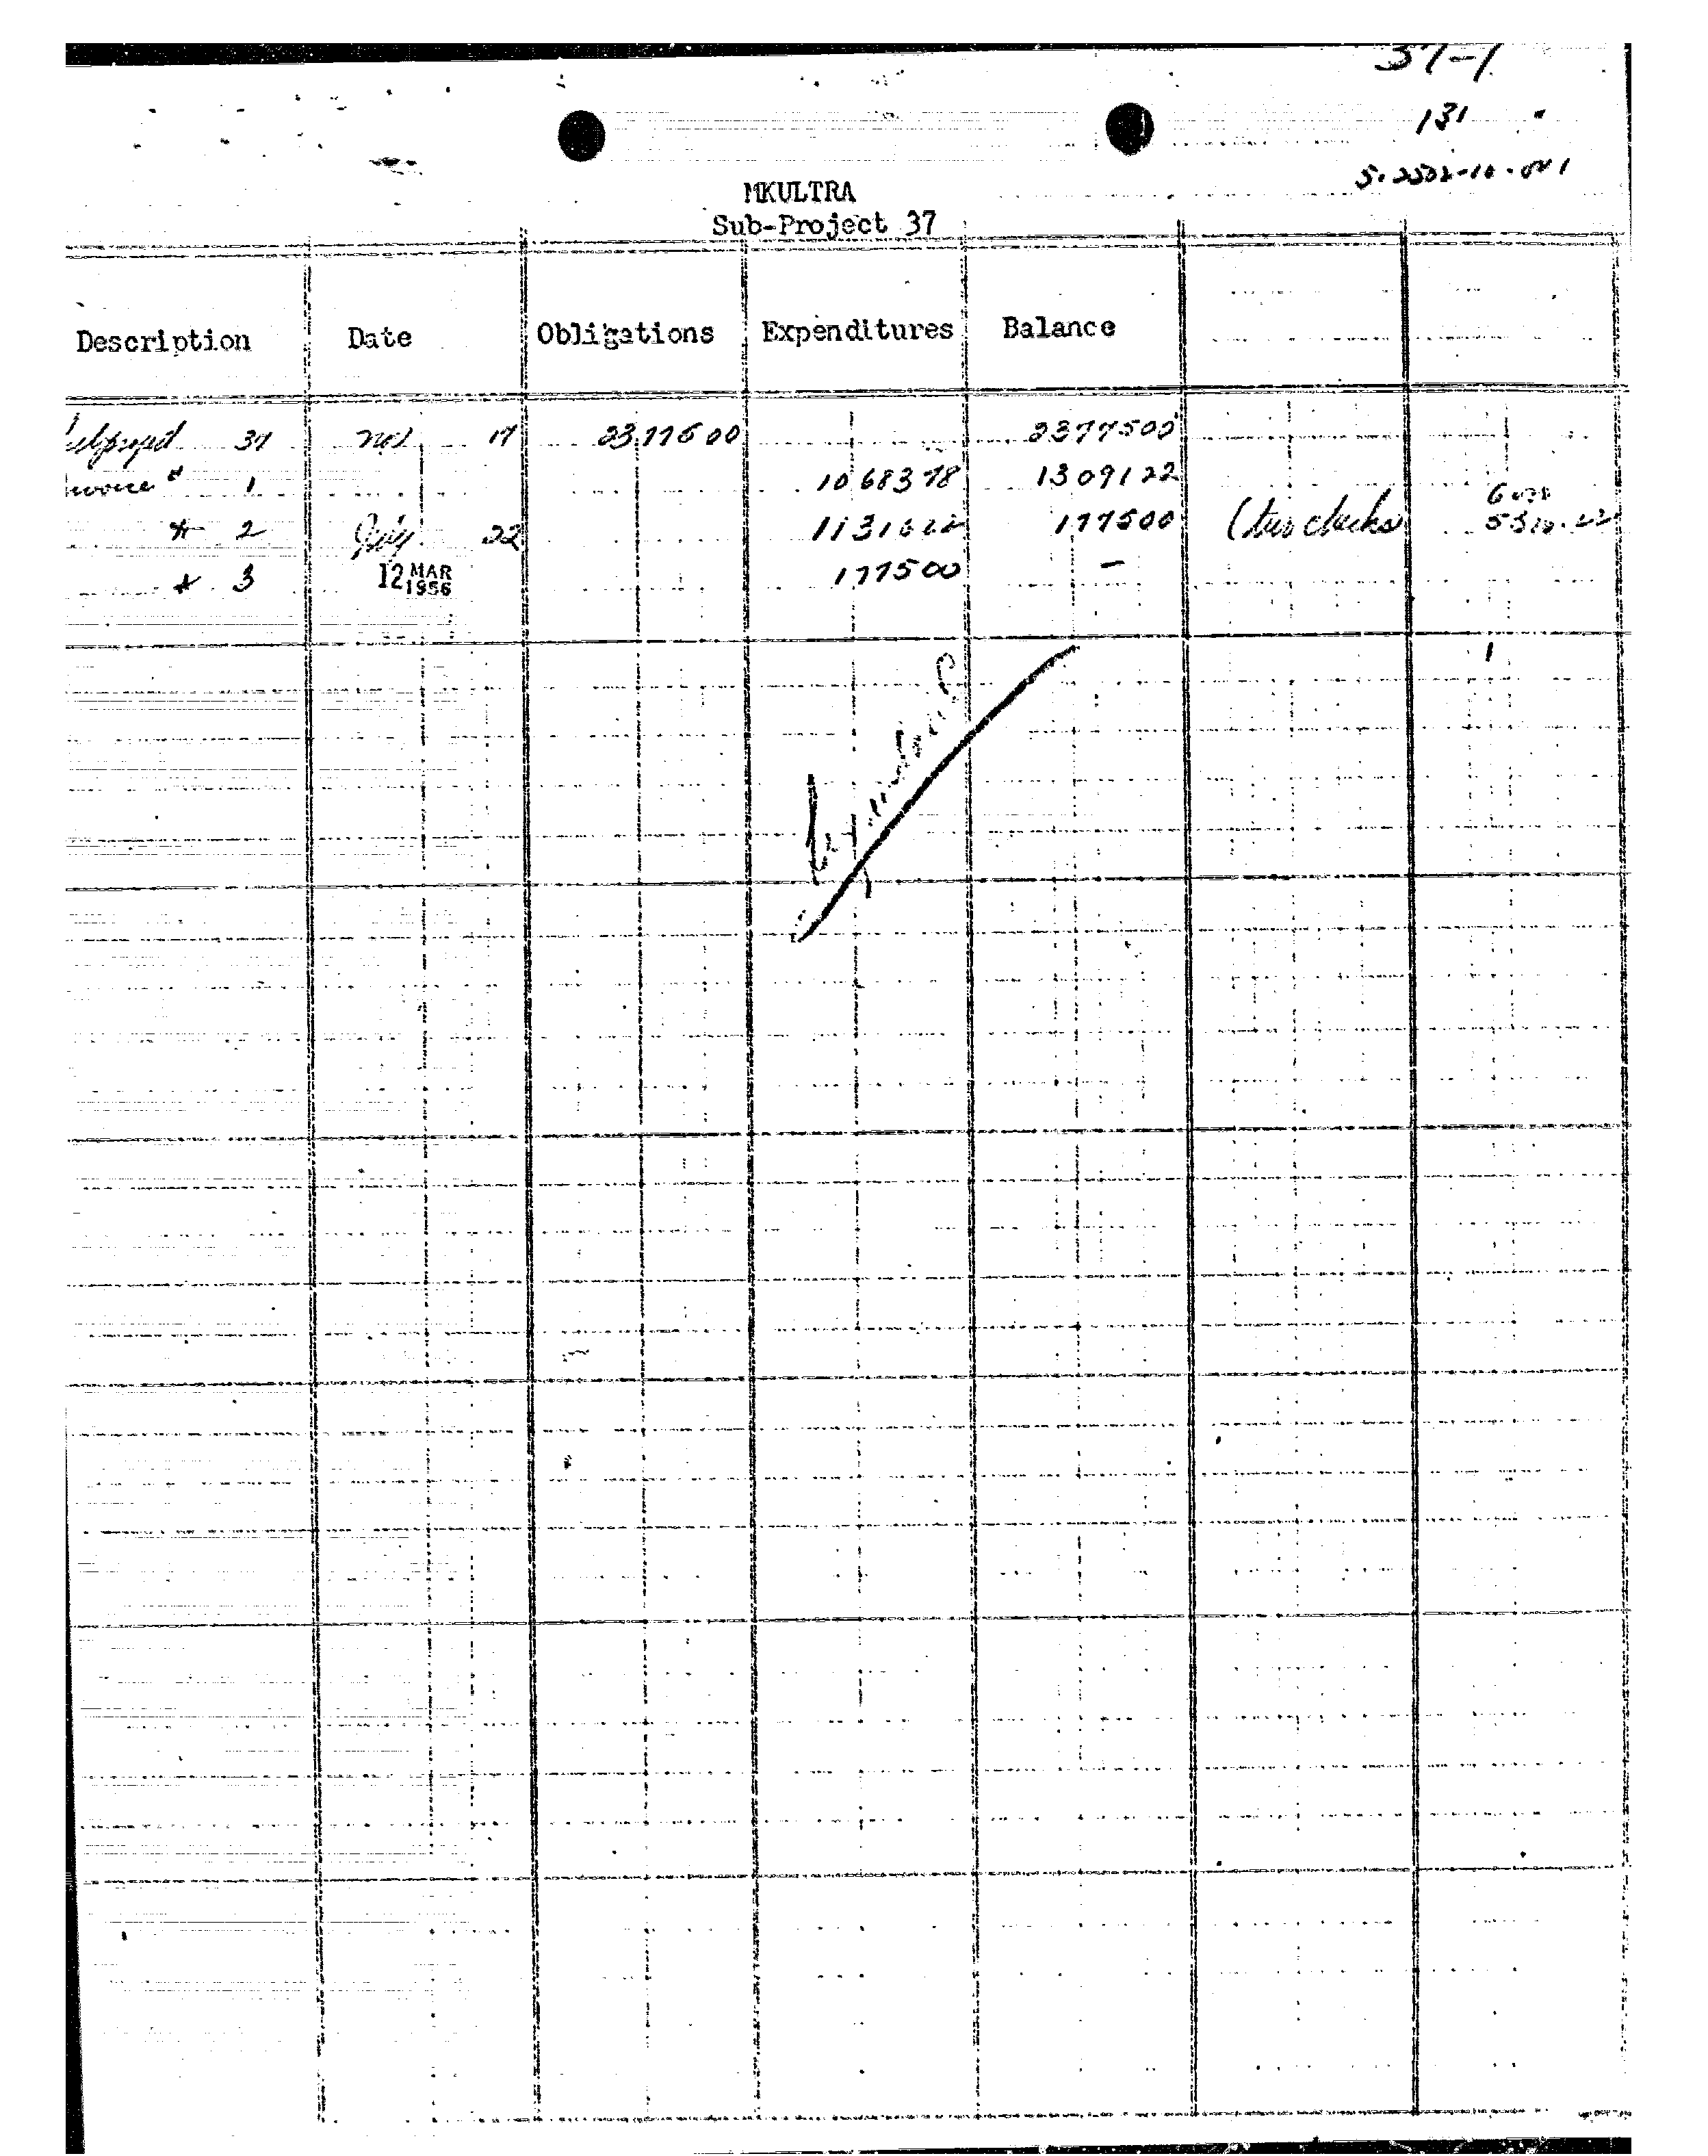 37-1
131
MKULTRA
Sub-Project 37
Description Date Obligations Expenditures Balance
Subproject 37 Nov 17 23,775 00 23775 00
Invoice # 1 10 683 78 13 091 22
# 2 July 22 11 316 22 1775 00 (two checks) 5316.22
# 3 12 MAR 1956 1775 00 —